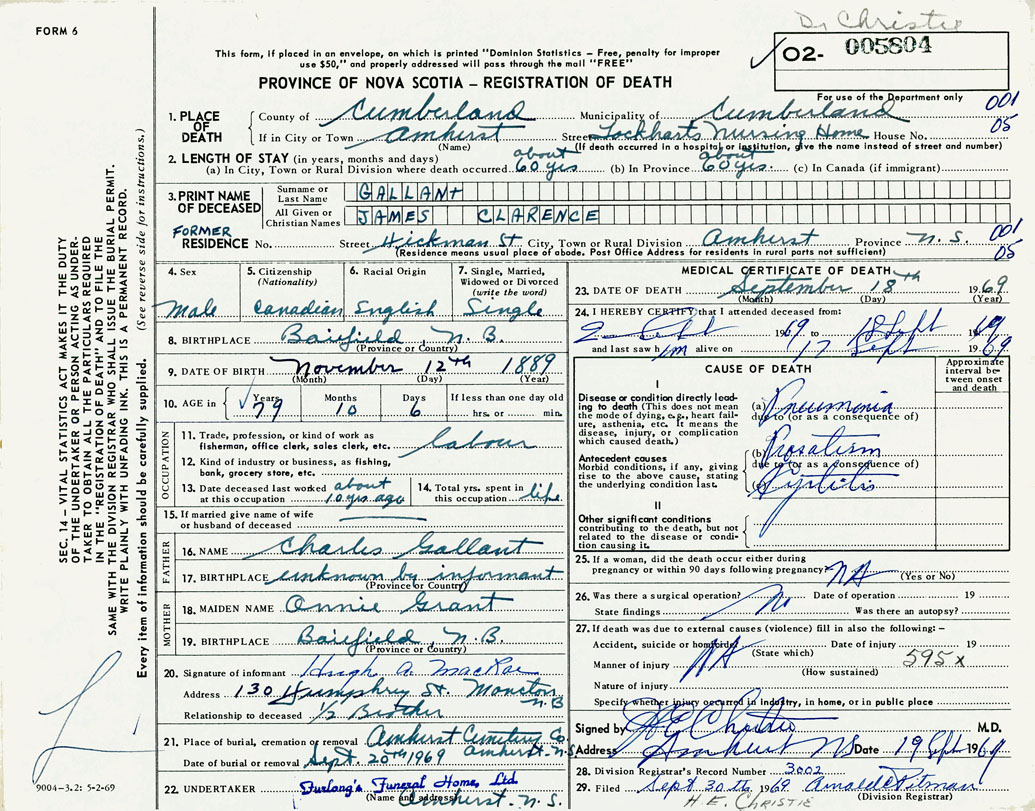 FORM 6
Dr Christie
This form, if placed in an envelope, on which is printed "Dominion Statistics – Free, penalty for improper
use $50," and properly addressed will pass through the mail "FREE"
O2- 005804
For use of the Department only
PROVINCE OF NOVA SCOTIA – REGISTRATION OF DEATH
001
05
1. PLACE OF DEATH
County of Cumberland Municipality of Cumberland
If in City or Town Amherst Street Lockharts Nursing Home House No.
(Name) (If death occurred in a hospital or institution, give the name instead of street and number)
2. LENGTH OF STAY (in years, months and days)
(a) In City, Town or Rural Division where death occurred about 60 yrs (b) In Province about 60 yrs. (c) In Canada (if immigrant)
3. PRINT NAME OF DECEASED
Surname or Last Name GALLANT
All Given or Christian Names JAMES CLARENCE
FORMER
RESIDENCE No. Street Hickman St City, Town or Rural Division Amherst Province N.S.
001
05
(Residence means usual place of abode. Post Office Address for residents in rural parts not sufficient)
4. Sex Male
5. Citizenship (Nationality) Canadian
6. Racial Origin English
7. Single, Married, Widowed or Divorced (write the word) Single
8. BIRTHPLACE Baiefield N.B.
(Province or Country)
9. DATE OF BIRTH November 12th 1889
(Month) (Day) (Year)
10. AGE in Years 79 Months 10 Days 6 If less than one day old hrs. or min.
OCCUPATION
11. Trade, profession, or kind of work as fisherman, office clerk, sales clerk, etc. labour
12. Kind of industry or business, as fishing, bank, grocery store, etc.
13. Date deceased last worked at this occupation about 10 yrs ago
14. Total yrs. spent in this occupation life
15. If married give name of wife or husband of deceased
FATHER
16. NAME Charles Gallant
17. BIRTHPLACE unknown by informant
(Province or Country)
MOTHER
18. MAIDEN NAME Annie Grant
19. BIRTHPLACE Baiefield, N.B.
(Province or Country)
20. Signature of informant Hugh A. MacRae
Address 130 Humphrey St. Moncton N.B
Relationship to deceased 1/2 Brother
21. Place of burial, cremation or removal Amherst Cemetery Co.
Amherst. N.S.
Date of burial or removal Sept. 20th 1969
22. UNDERTAKER Furlong's Funeral Home, Ltd
(Name and address) Amherst. N.S.
MEDICAL CERTIFICATE OF DEATH
23. DATE OF DEATH September 18th 1969
(Month) (Day) (Year)
24. I HEREBY CERTIFY that I attended deceased from:
Sept 1969 to 18 Sept 1969
and last saw him alive on 17 Sept 1969
CAUSE OF DEATH
Approximate interval between onset and death
I
Disease or condition directly leading to death (This does not mean the mode of dying, e.g., heart failure, asthenia, etc. It means the disease, injury, or complication which caused death.)
(a) Pneumonia
due to (or as a consequence of)
Antecedent causes
Morbid conditions, if any, giving rise to the above cause, stating the underlying condition last.
(b) Prosatism
due to (or as a consequence of)
(c) Cystitis
II
Other significant conditions
contributing to the death, but not related to the disease or condition causing it.
25. If a woman, did the death occur either during pregnancy or within 90 days following pregnancy? NA
(Yes or No)
26. Was there a surgical operation? No Date of operation 19
State findings Was there an autopsy?
27. If death was due to external causes (violence) fill in also the following: –
Accident, suicide or homicide NA Date of injury 19
(State which)
595x
Manner of injury
(How sustained)
Nature of injury
Specify whether injury occurred in industry, in home, or in public place
Signed by J E Christie M.D.
Address Amherst NS Date 19 Sept 1969
28. Division Registrar's Record Number 3002
29. Filed Sept 30th 1969 Arnold E Pitman
(Division Registrar)
H. E. CHRISTIE
SEC. 14 – VITAL STATISTICS ACT MAKES IT THE DUTY
OF THE UNDERTAKER OR PERSON ACTING AS UNDERTAKER
TO OBTAIN ALL THE PARTICULARS REQUIRED
IN THE "REGISTRATION OF DEATH" AND TO FILE THE
SAME WITH THE DIVISION REGISTRAR WHO SHALL ISSUE THE BURIAL PERMIT.
WRITE PLAINLY WITH UNFADING INK. THIS IS A PERMANENT RECORD.
Every item of information should be carefully supplied. (See reverse side for instructions.)
9004-3.2: 5-2-69